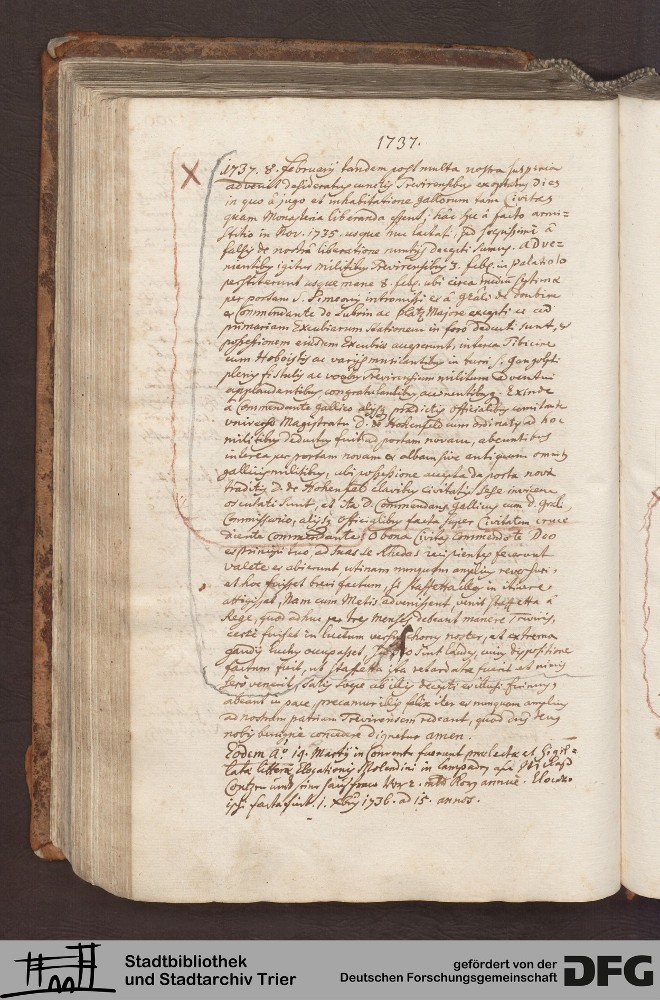 1737.
1737. 8. februarij tandem post multa nostra suspiria
advenit desideratus cunctis Trevirensibus exoptatus Dies
in quo à jugo et inhabitatione gallorum tam Civitas
quam Monasteria liberanda essent; hâc spe à facto armi=
stitio in Nov. 1735. usque huc lactati, sed sepissimè à
falsis de nostrâ liberatione nuntijs decepti sumus. adve=
nientibus igitur militibus Trevirensibus 3. febr. in palatiolo
perstiterunt usque mane 8. febr. ubi circa
per portam S. Simeonis intromissi et à de Coubine
et Commendante de Lubrin ac platz Majore excepti et ad
primariam Excubiarum stationem in foro deducti sunt, et
possessionem eiusdem Excubiae acceperunt, interea Tibicine
cum Hoboistis ac varijs musicantibus in turri S. Gangolphi
plenis fistulis ac vocibus Trevirensium militum adventui
applaudentibus congratulantibus accinentibus. Exinde
à Commendante gallico alijsque praedictis officialibus comitante
universo Magistratu D. de Hohenfeld cum ordinatis ad hoc
militibus deductus fuit ad portam novam, abeuntibus
interea per portam novam et albam sive antiquam omnibus
gallicis militibus, ubi possessione accepta de porta nova
traditis D. de Hohenfeld clavibus civitatis sese invicem
osculati sunt, et ita D. Commendans gallicus cum D. grali
Commissario, alijsque officialibus facta super Civitatem cruce
dicente Commendante: O bona Civitas commendo te Deo
et principi tuo, ad suas se Rhedas recipientes fecerunt
valete et abierunt utinam nunquam amplius reversuri,
et hoc fuisset brevi factum, si staffetta illos in itinere
attigisset, Nam cum Metis advenissent, venit staffetta à
Rege, quod adhuc per tres menses debeant manere Treviris,
certè fuisset in luctum versus chorus noster, et extrema
gaudij luctus occupasset, sint laudes, cuius dispositione
factum fuit, ut staffetta ita retardata fuerit et nimis
serò venerit, satis saepe ab illis decepti et illusi fuimus,
abeant in pace, precamur illis felix iter et nunquam amplius
ad nostram patriam Trevirensem redeant, quod Deus
nobis benignè concedere dignetur amen.
Eodem Aº 19. Martij in Conventu fuerunt praelectae et sigil=
latae litterae Elocationis Molendini in
annuè. Elocatio
facta fuit 1. Xbris 1736. ad 15. annos.
Stadtbibliothek
und Stadtarchiv Trier
gefördert von der
Deutschen Forschungsgemeinschaft
DFG